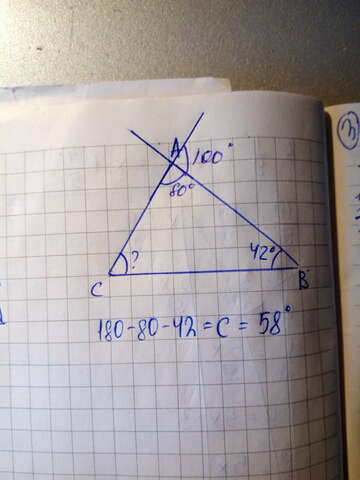 A
100°
80°
42°
?
C
B
180-80-42=C=58°
3